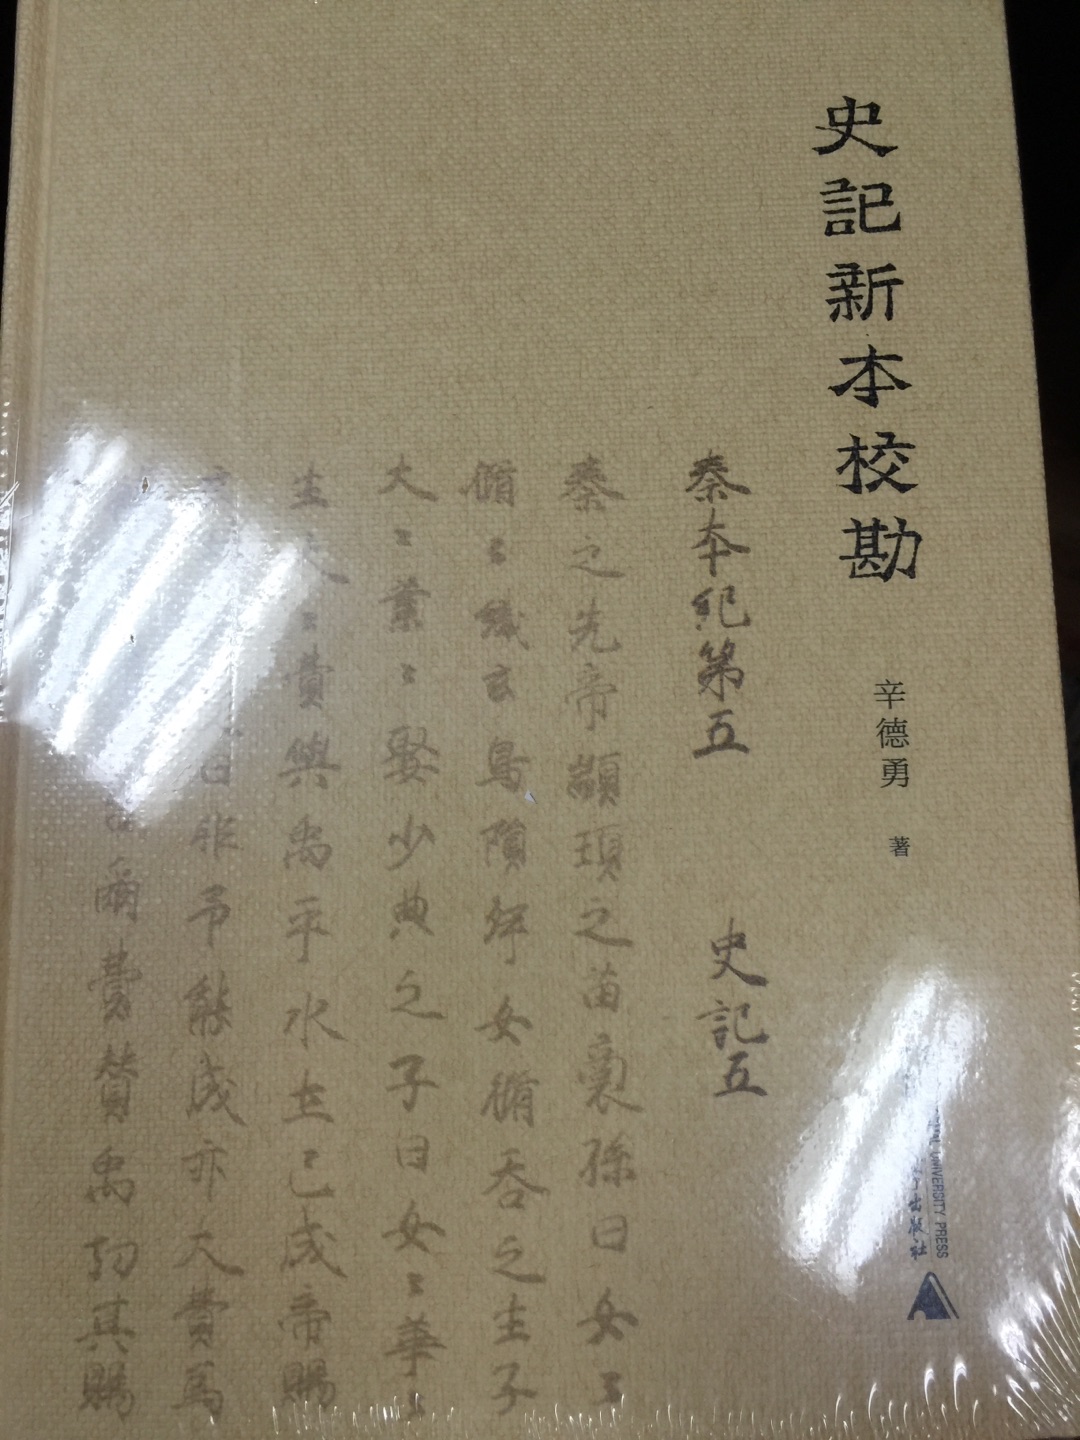 史記新本校勘
辛德勇 著
UNIVERSITY PRESS
出版社
秦本紀第五 史記五
秦之先帝顓頊之苗裔孫曰女〻
脩〻織玄鳥隕卵女脩吞之生子
大〻業〻娶少典之子曰女〻華〻
生大〻費與禹平水土已成帝賜
曰非予能成亦大費爲
爾費賛禹功其賜